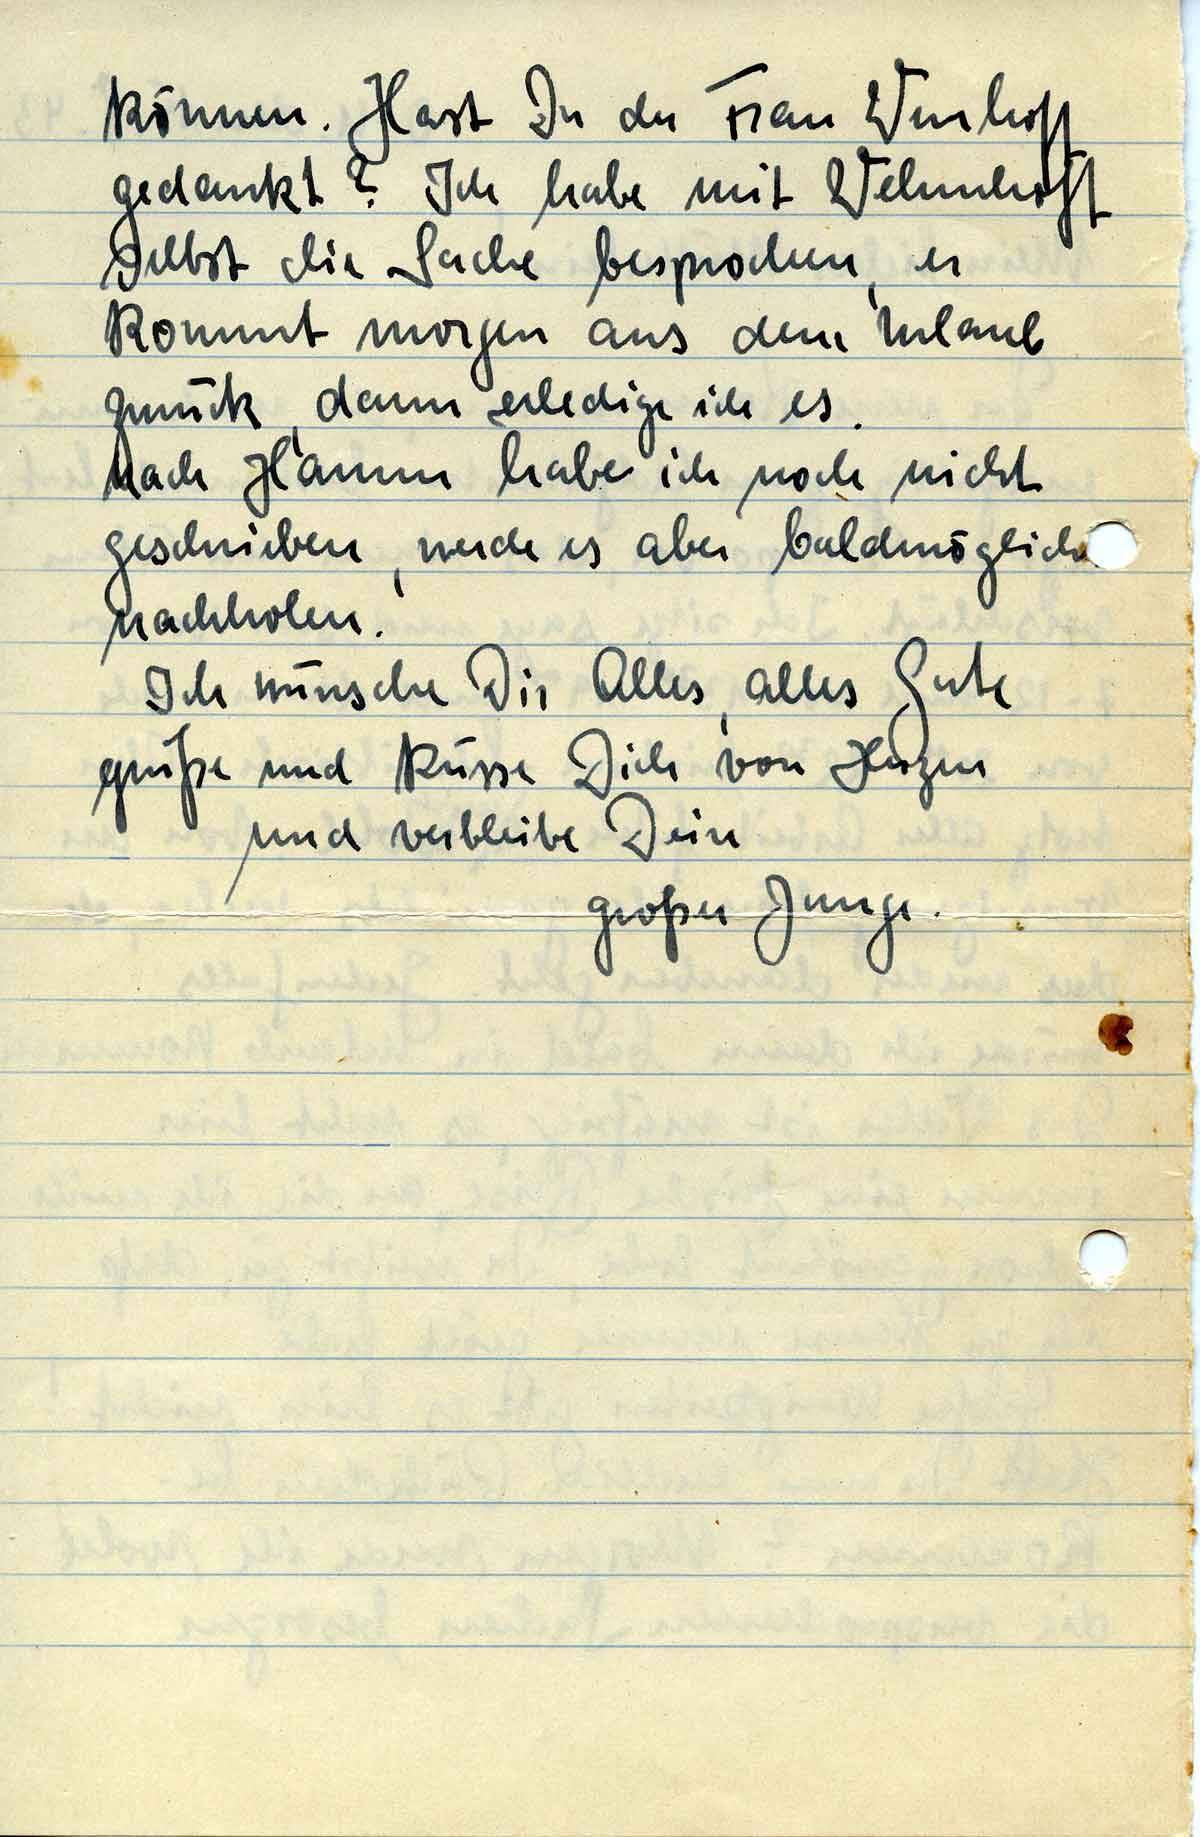 können. Hast Du der Frau Wenhoff
gedankt? Ich habe mit Wehmhoff
selbst die Sache besprochen, er
kommt morgen aus dem Urlaub
zurück, dann erledige ich es.
Nach Hamm habe ich noch nicht
geschrieben, werde es aber baldmöglich
nachholen.
Ich wünsche Dir Alles, alles Gute
grüße und küsse Dich von Herzen
und verbleibe Dein
großer Junge.